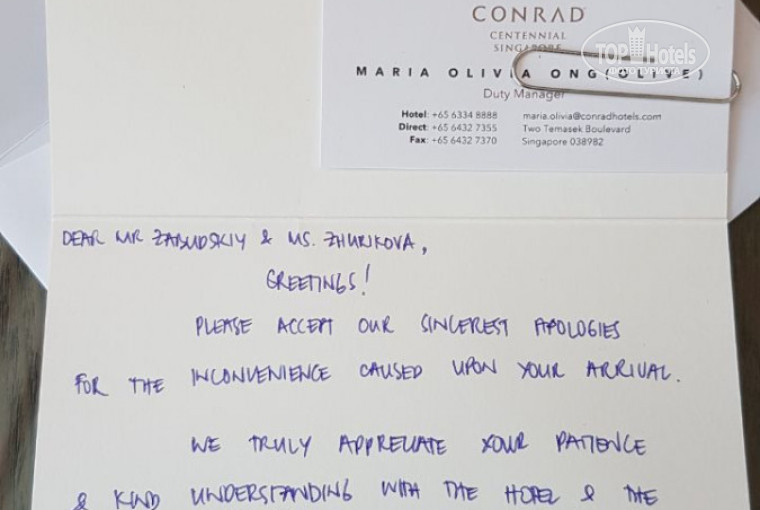 CONRAD
CENTENNIAL
SINGAPORE
MARIA OLIVIA ONG (OLIVE)
Duty Manager
Hotel: +65 6334 8888
Direct: +65 6432 7355
Fax: +65 6432 7370
maria.olivia@conradhotels.com
Two Temasek Boulevard
Singapore 038982
TOP Hotels
DEAR MR ZABUDSKIY & MS. ZHURIKOVA,
GREETINGS!
PLEASE ACCEPT OUR SINCEREST APOLOGIES
FOR THE INCONVENIENCE CAUSED UPON YOUR ARRIVAL.
WE TRULY APPRECIATE YOUR PATIENCE
& KIND UNDERSTANDING WITH THE HOTEL & THE